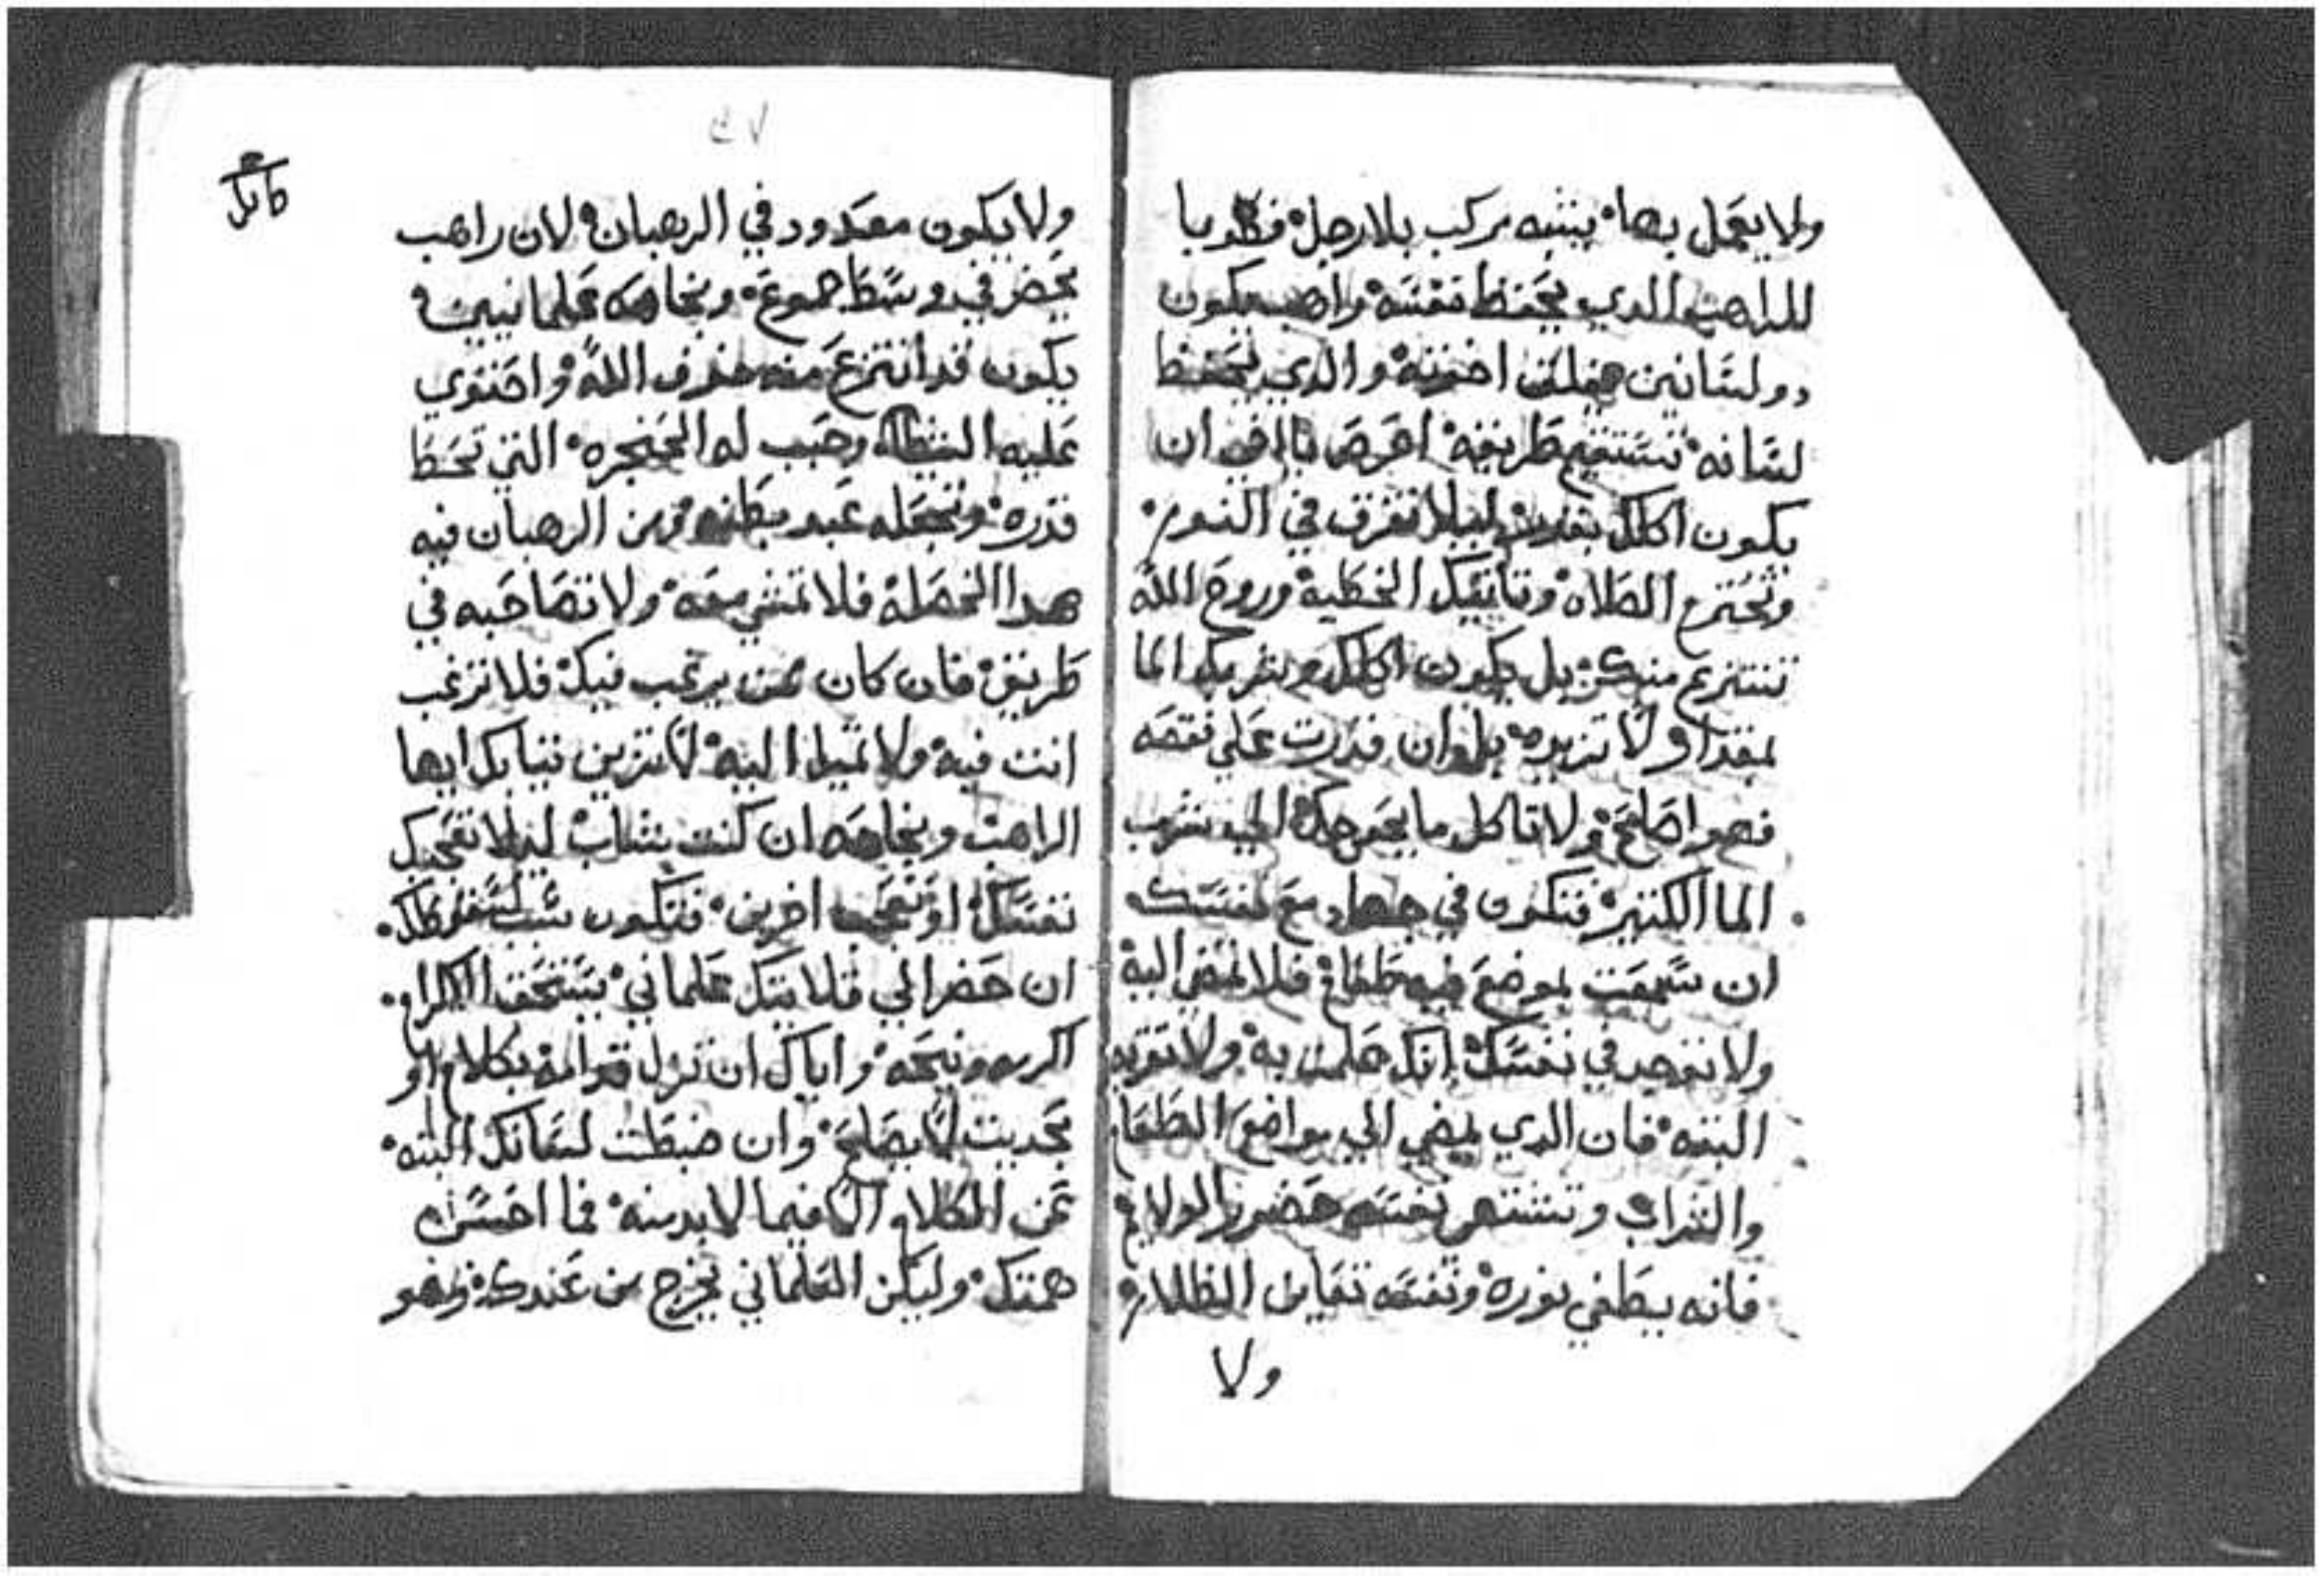 ولا يعمل بها يشبه مركب بلا رجل فطوبا
للراهب الدي يحفظ نفسه وراهب يكون
دو لسانين اخوته والدي يحفظ
لسانه تستقيم طريقه احرص يا اخي ان
يكون اكلك بقدر ليلا تغرق في النوم
وتخترع الصلاه وتاتيك الخطية وروح الله
تنتزع منك بل يكون اكلك وشربك الما
بمقدار ولا تزيده بل وان قدرت على نقصه
فهو اصلح ولا تاكل ما يحوجك الي شرب
الما الكتير فتكون في جهاد مع نفسك
ان سمعت بموضع فيه طعام فلا تمضي اليه
ولا توجد في نفسك انك علمت به ولا تريد
البته فان الدي يمضي الي مواضع الطعام
والشراب وتشتهي نفسه حضور الولايم
فانه يطفي نوره ونفسه تعاين الظلام
ولا
٤٧
ولا يكون معدود في الرهبان لان راهب
يحضر في وسط جموع علمانيين
يكون قد انتزع منه خوف الله واحتوي
عليه الشيطان وحبب له الحنجره التي تحط
قدره وتجعله عبد بطنه ومن الرهبان فيه
هدا الخصله فلا تمشي معه ولا تصاحبه في
طريق فان كان من يرغب فيك فلا ترغب
انت فيه ولا تميل اليه لا تزين تيابك ايها
الراهب ان كنت شاب ليلا تعجبك
نفسك او تعجب اخرين فتكون سبب
ان حضر الي قلايتك علماني يستحق الاكرام
اكرمه ونيحه واياك ان تزل قدامه بكلام او
بحديت لا يصلح وان ضبطت لسانك البته
عن الكلام الا فيما لابد منه فما احسن
همتك وليكن العلماني يخرج من عندك وهو